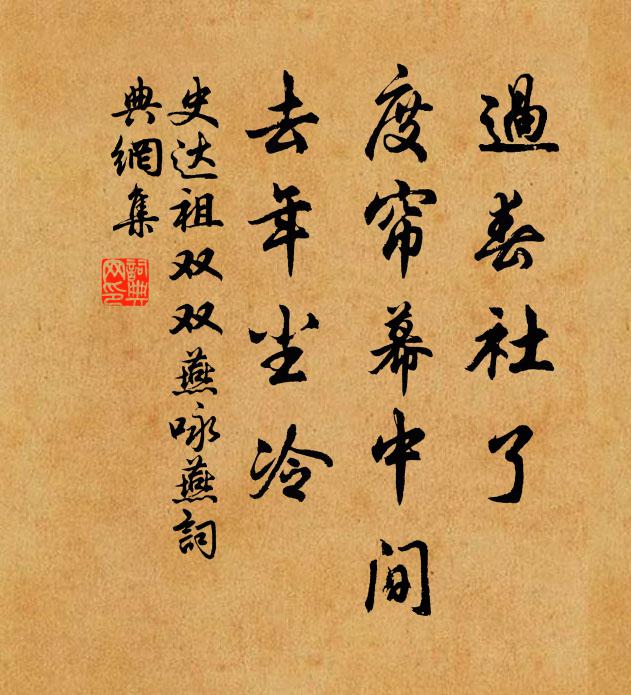 過春社了
度帘幕中间
去年尘冷
史达祖双双燕咏燕詞
典網集
詞典
网印